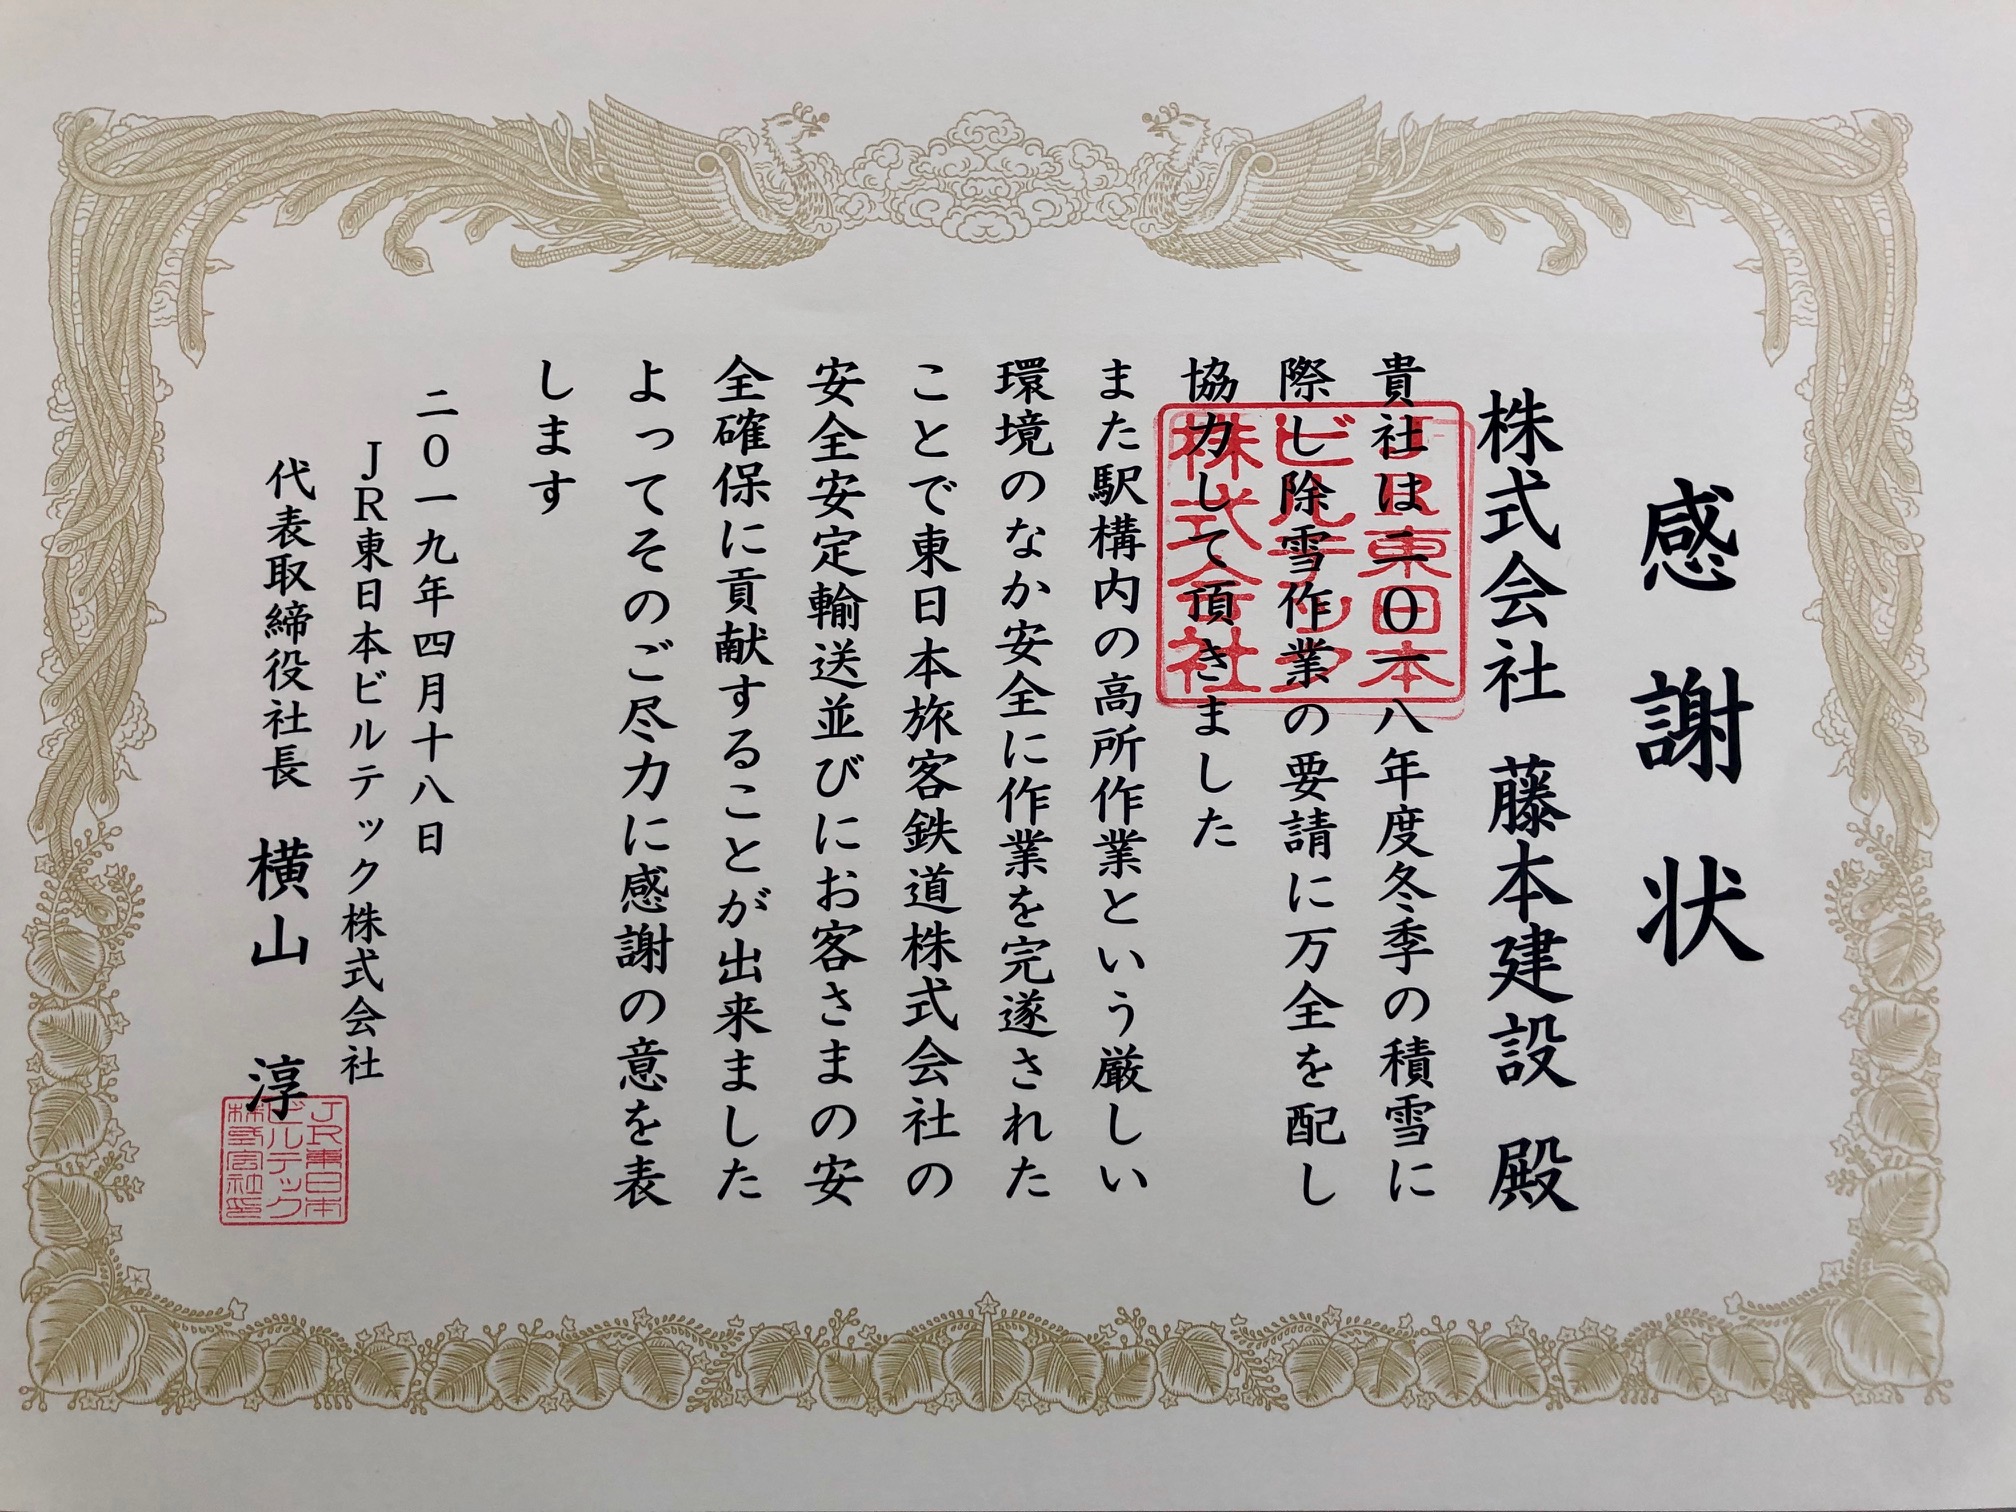 感謝状
株式会社 藤本建設 殿
貴社は二〇一八年度冬季の積雪に
際し除雪作業の要請に万全を配し
協力して頂きました
また駅構内の高所作業という厳しい
環境のなか安全に作業を完遂された
ことで東日本旅客鉄道株式会社の
安全安定輸送並びにお客さまの安
全確保に貢献することが出来ました
よってそのご尽力に感謝の意を表
します
二〇一九年四月十八日
JR東日本ビルテック株式会社
代表取締役社長 横山 淳
JR東日本
ビルテック
株式会社
JR東日本
ビルテック
株式会社印